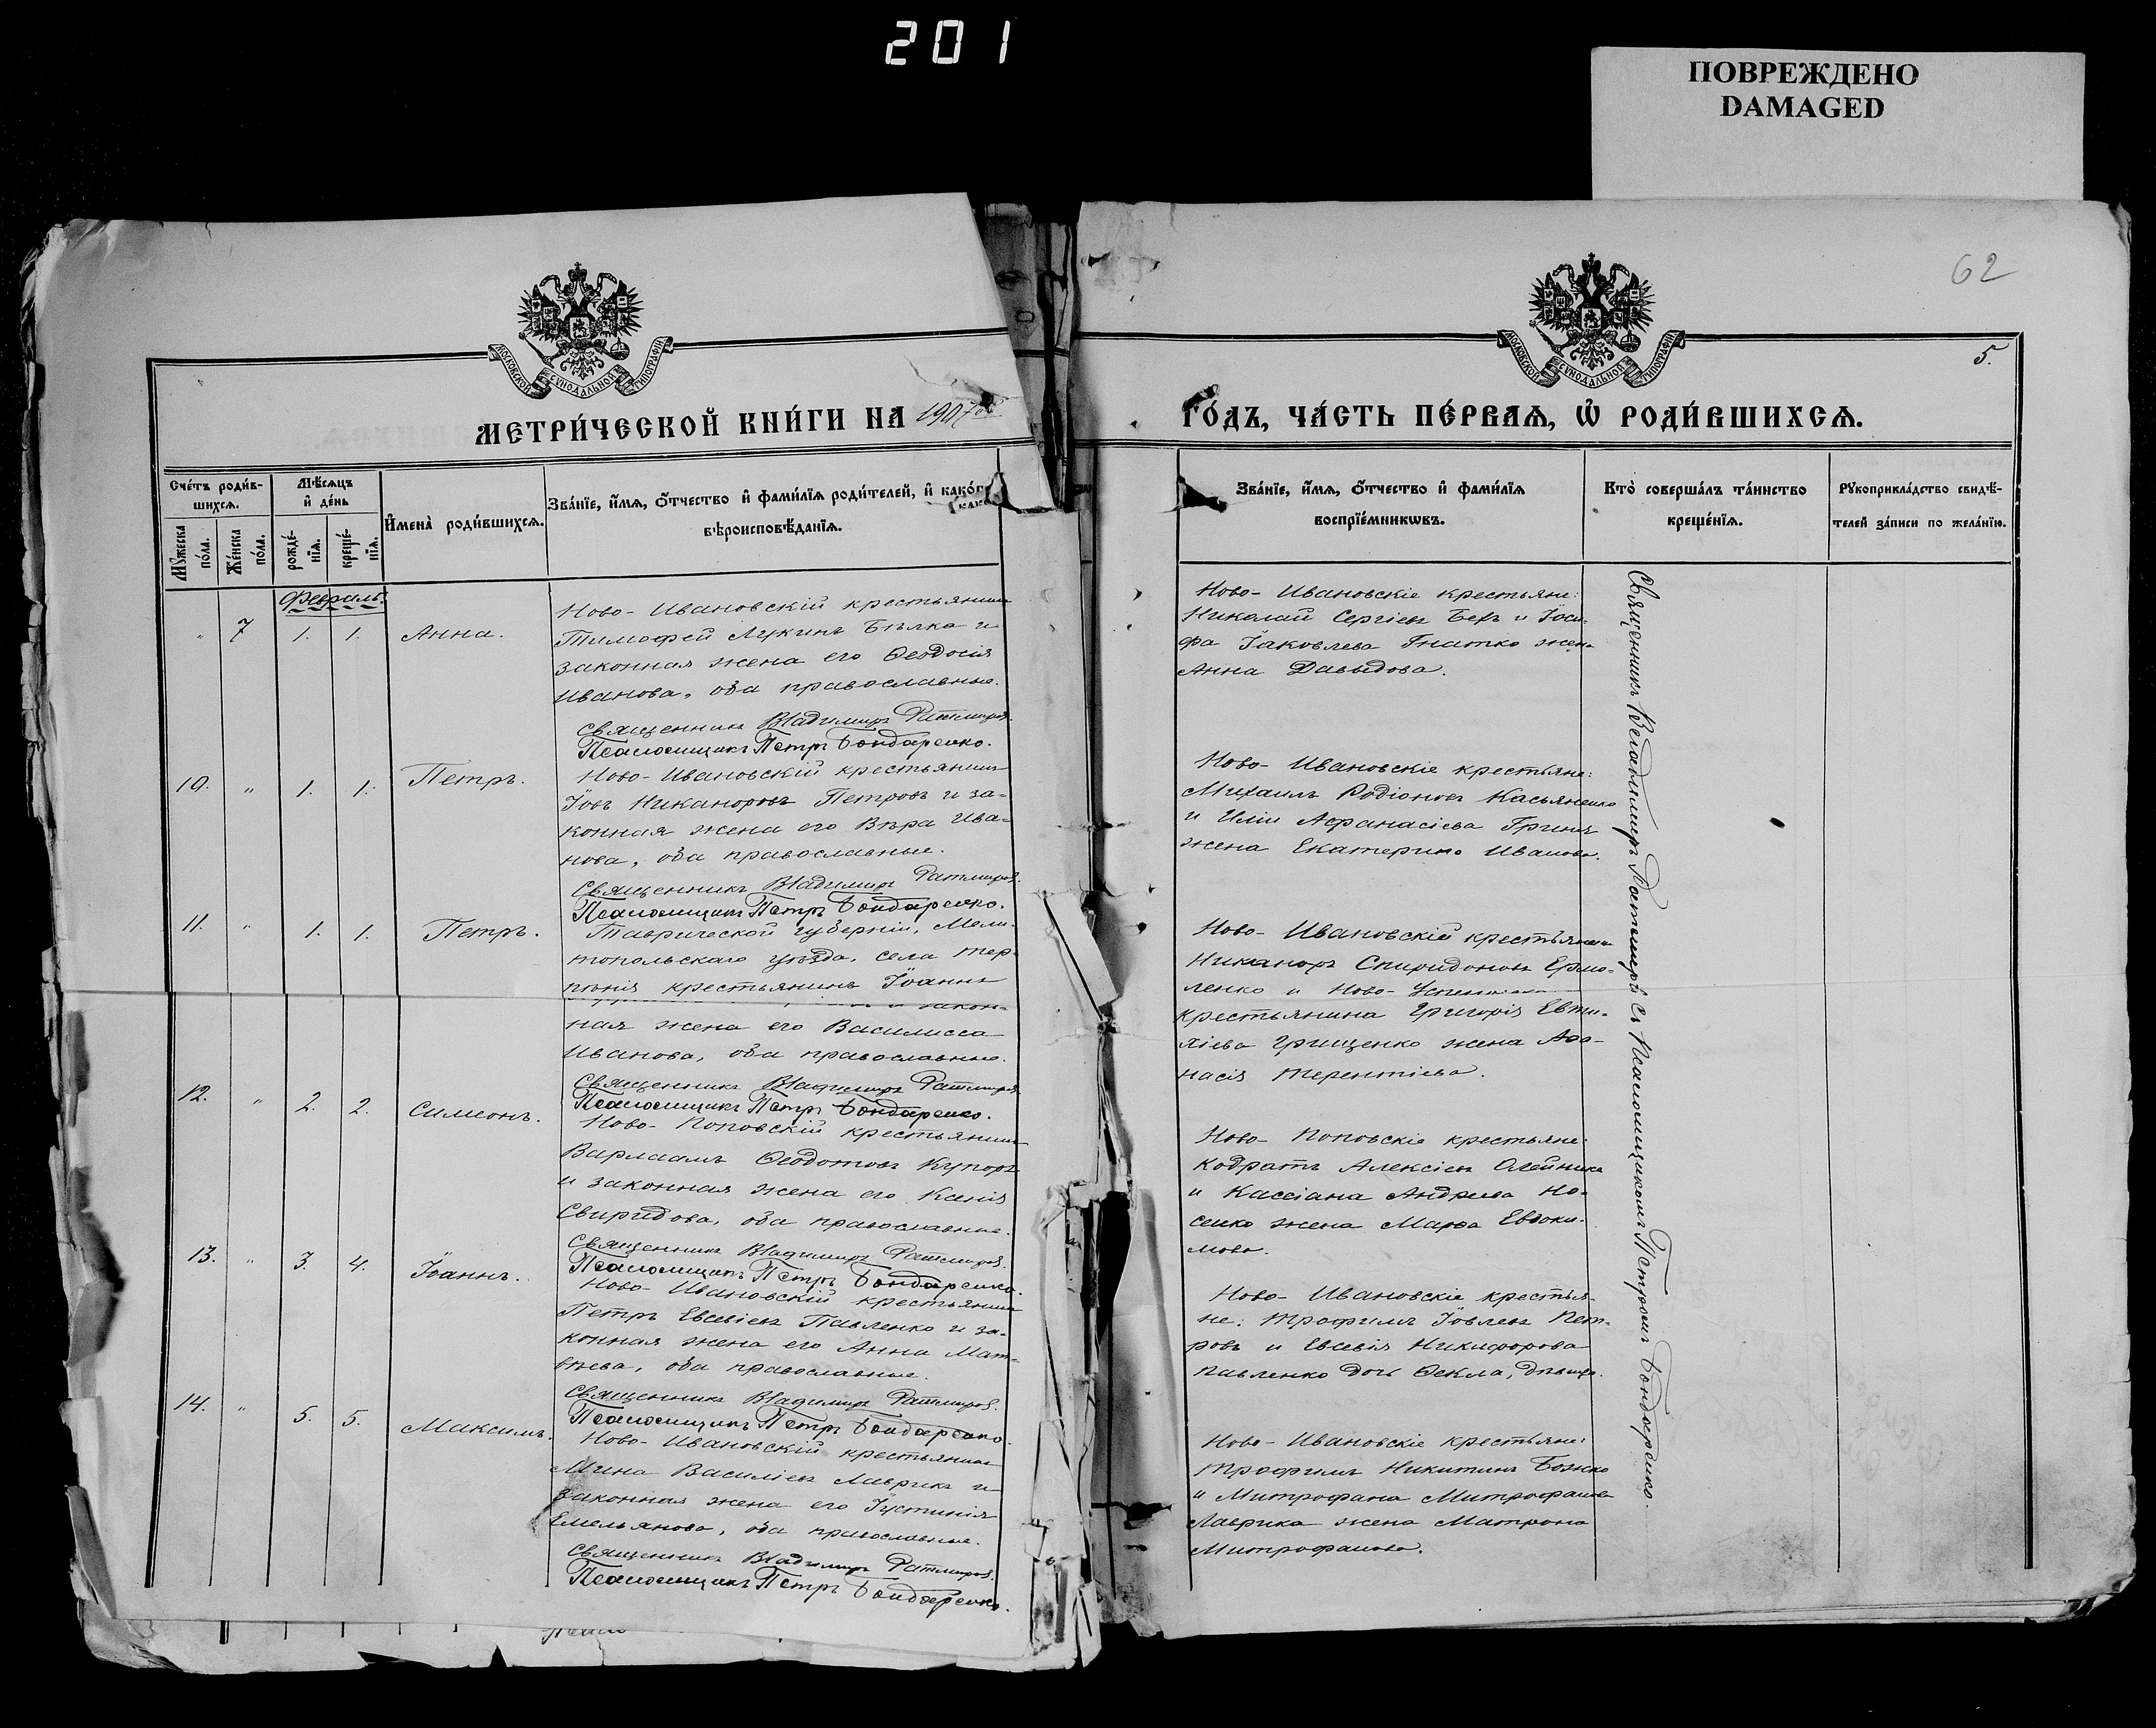 201
ПОВРЕЖДЕНО
DAMAGED
62
5.
МОСКОВСКОЙ СѴНОДАЛЬНОЙ ТИПОГРАФІИ
МОСКОВСКОЙ СѴНОДАЛЬНОЙ ТИПОГРАФІИ
МЕТРИ́ЧЕСКОЙ КНИ́ГИ НА 1907й
ГО́ДЪ, ЧА́СТЬ ПЕ́РВАѦ, Ѡ҆ РОДИ́ВШИХСѦ.
Сче́тъ роди́в-
шихсѧ.
Мѣ́сѧцъ
и҆ де́нь
Мꙋ́жеска
по́ла.
Же́нска
по́ла.
рожде́-
нїѧ.
креще́-
нїѧ.
И҆мена̀ роди́вшихсѧ.
Зва́нїе, и҆́мѧ, ѻ҆́тчество и҆ фами́лїѧ роди́телей, и҆ како́гѡ
вѣроисповѣ́данїѧ.
Зва́нїе, и҆́мѧ, ѻ҆́тчество и҆ фами́лїѧ
воспрїе́мникѡвъ.
Кто̀ соверша́лъ та́инство
креще́нїѧ.
Рꙋкоприкла́дство свидѣ́-
телей за́писи по жела́нїю.
Февраль.
" 7 1. 1. Анна.
Ново-Ивановскій крестьянинъ
Тимофей Лукинъ Бѣлка и
законная жена его Ѳеодосія
Иванова, оба православные.
Священникъ Владимиръ Ратмировъ.
Псаломщикъ Петръ Бондаренко.
Ново-Ивановскіе крестьяне:
Николай Сергіевъ Бехъ и Іоси-
фа Іаковлева Гнатко жена
Анна Давыдова.
10. " 1. 1. Петръ.
Ново-Ивановскій крестьянинъ
Іовъ Никаноровъ Петровъ и за-
конная жена его Вѣра Ива-
нова, оба православные.
Священникъ Владимиръ Ратмировъ.
Псаломщикъ Петръ Бондаренко.
Ново-Ивановскіе крестьяне:
Михаилъ Родіоновъ Касьяненко
и Иліи Аѳанасіева Гриня
жена Екатерина Иванова.
11. " 1. 1. Петръ.
Таврической губерніи, Мели-
топольскаго уѣзда, села Тер-
пѣнія крестьянинъ Іоаннъ
и закон-
ная жена его Василисса
Иванова, оба православные.
Священникъ Владимиръ Ратмировъ.
Псаломщикъ Петръ Бондаренко.
Ново-Ивановскій крестьянинъ
Никаноръ Спиридоновъ Ермо-
ленко и Ново-
крестьянина Григорія Евти-
хіева Грищенко жена Аѳа-
насія Терентіева.
12. " 2. 2. Симеонъ.
Ново-Поповскій крестьянинъ
Варлаамъ Ѳеодотовъ Купоръ
и законная жена его Ксенія
Свиридова, оба православные.
Священникъ Владимиръ Ратмировъ.
Псаломщикъ Петръ Бондаренко.
Ново-Поповскіе крестьяне:
Кодратъ Алексіевъ Олейникъ
и Кассіана Андреева Но-
сенко жена Марѳа Евдоки-
мова.
13. " 3. 4. Іоаннъ.
Ново-Ивановскій крестьянинъ
Петръ Евсевіевъ Павленко и за-
конная жена его Анна Мат-
вѣева, оба православные.
Священникъ Владимиръ Ратмировъ.
Псаломщикъ Петръ Бондаренко.
Ново-Ивановскіе крестья-
не: Трофимъ Іовлевъ Пет-
ровъ и Евсевія Никифорова
Павленко дочь Ѳекла, дѣвица.
14. " 5. 5. Максимъ.
Ново-Ивановскій крестьянинъ
Мина Василіевъ Лаврикъ и
законная жена его Іустинія
Емельянова, оба православные.
Священникъ Владимиръ Ратмировъ.
Псаломщикъ Петръ Бондаренко.
Ново-Ивановскіе крестьяне:
Трофимъ Никитинъ Божко
и Митрофана Митрофанова
Лаврика жена Матрона
Митрофанова.
Священникъ Владимиръ Ратмировъ съ Псаломщикомъ Петромъ Бондаренко.